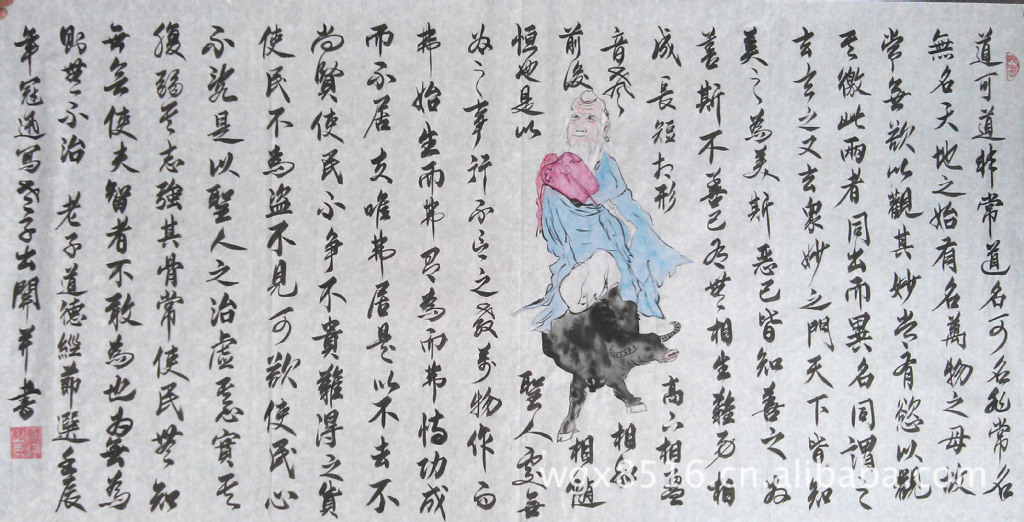 道可道非常道名可名非常名
無名天地之始有名萬物之母故
常無欲以觀其妙常有慾以觀
其徼此兩者同出而異名同謂之
玄玄之又玄衆妙之門天下皆知
美之為美斯惡已皆知善之為
善斯不善已有無相生難易相
成長短相形高下相盈
音聲相和
前後相隨
恒也是以聖人處無
為之事行不言之教萬物作而
弗始生而弗有為而弗恃功成
而不居夫唯弗居是以不去不
尚賢使民不争不貴難得之貨
使民不為盜不見可欲使民心
不亂是以聖人之治虛其心實其
腹弱其志強其骨常使民無知
無欲使夫智者不敢為也為無為
則無不治 老子道德經節選 壬辰
年冠通寫老子出關并書
wgx3516.cn.alibaba.com